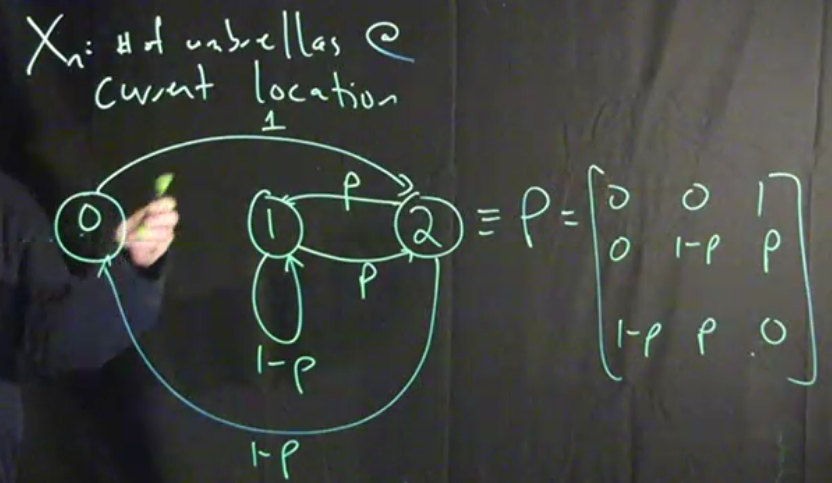 Xn: # of umbrellas @
current location
1
0 1 2 ≡ P = [0 0 1
0 1-p p
1-p p 0]
p
p
1-p
1-p